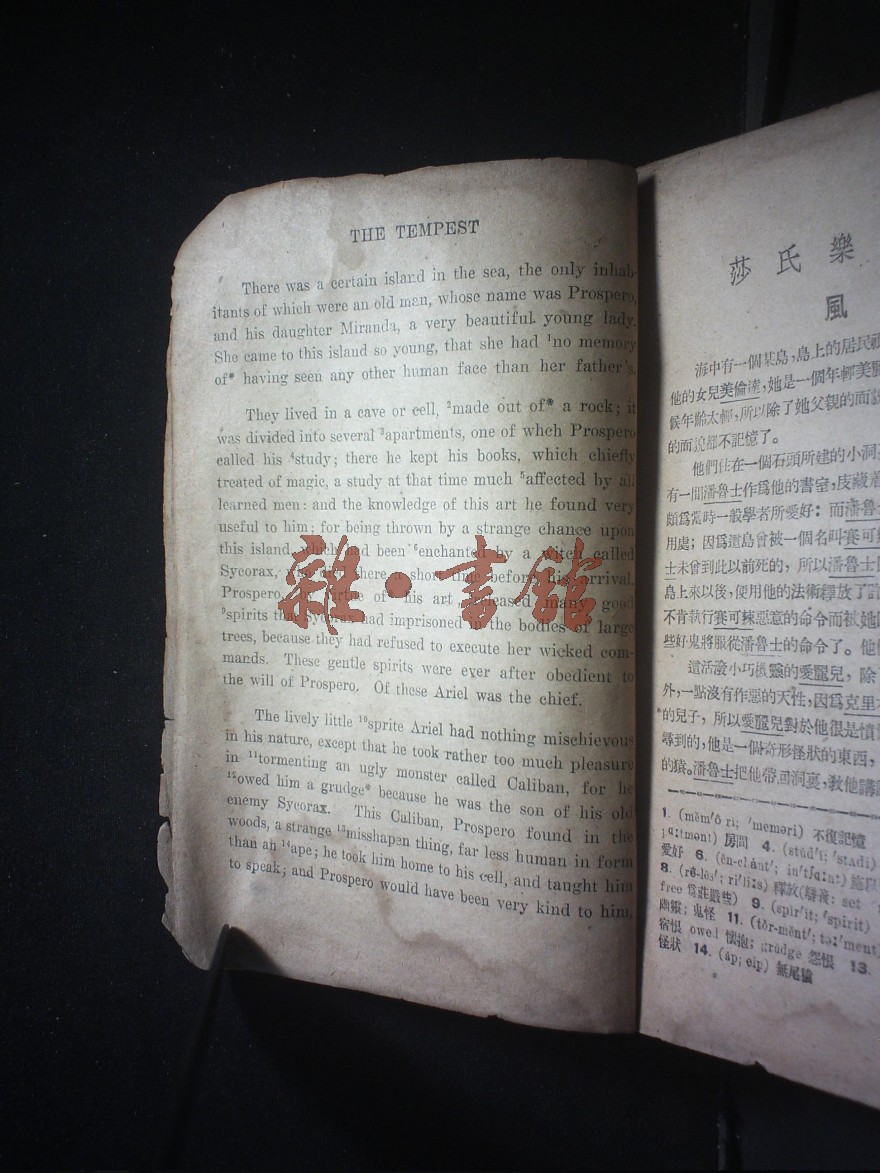 THE TEMPEST
There was a certain island in the sea, the only inhab-
itants of which were an old man, whose name was Prospero,
and his daughter Miranda, a very beautiful young lady.
She came to this island so young, that she had ¹no memory
of* having seen any other human face than her father's.
They lived in a cave or cell, ²made out of* a rock; it
was divided into several ³apartments, one of whch Prospero
called his ⁴study; there he kept his books, which chiefly
treated of magic, a study at that time much ⁵affected by all
learned men: and the knowledge of this art he found very
useful to him; for being thrown by a strange chance upon
this island, which had been ⁶enchanted by a witch called
Sycorax, who died there a short time before his arrival,
Prospero, by virtue of his art, released many good
⁹spirits that Sycorax had imprisoned in the bodies of large
trees, because they had refused to execute her wicked com-
mands. These gentle spirits were ever after obedient to
the will of Prospero. Of these Ariel was the chief.
The lively little ¹⁰sprite Ariel had nothing mischievous
in his nature, except that he took rather too much pleasure
in ¹¹tormenting an ugly monster called Caliban, for he
¹²owed him a grudge* because he was the son of his old
enemy Sycorax. This Caliban, Prospero found in the
woods, a strange ¹³misshapen thing, far less human in form
than an ¹⁴ape; he took him home to his cell, and taught him
to speak; and Prospero would have been very kind to him,
雜·書館
莎氏樂
風
海中有一個某島,島上的居民祇
他的女兒美倫達,她是一個年輕美麗
候年齡太輕,所以除了她父親的面貌
的面貌都不記憶了。
他們住在一個石頭所建的小洞
有一間潘魯士作爲他的書室,庋藏着
頗爲當時一般學者所愛好:而潘魯士
用處;因爲這島曾被一個名叫賽可
士未曾到此以前死的,所以潘魯士
島上來以後,便用他的法術釋放了許
不肯執行賽可辣惡意的命令而被她
些好鬼將服從潘魯士的命令了。他
這活潑小巧機靈的愛麗兒,除
外,一點沒有作惡的天性,因爲克里
*的兒子,所以愛麗兒對於他很是憤
尋到的,他是一個奇形怪狀的東西,
的猿。潘魯士把他帶回洞裏,敎他講
1. (mĕm'ô ri; 'meməri) 不復記憶
房間 4. (stŭd'i; 'stʌdi)
愛好 6. (ĕn-chȧnt'; in'tʃɑ:nt)
8. (rê-lēs'; ri'li:s) 釋放
free 爲莊嚴些) 9. (spĭr'it; 'spirit)
幽靈;鬼怪 11. (tôr-mĕnt'; tɔ:'ment)
宿恨 owed 懷抱; grudge 怨恨 13.
怪狀 14. (āp; eip) 無尾猿